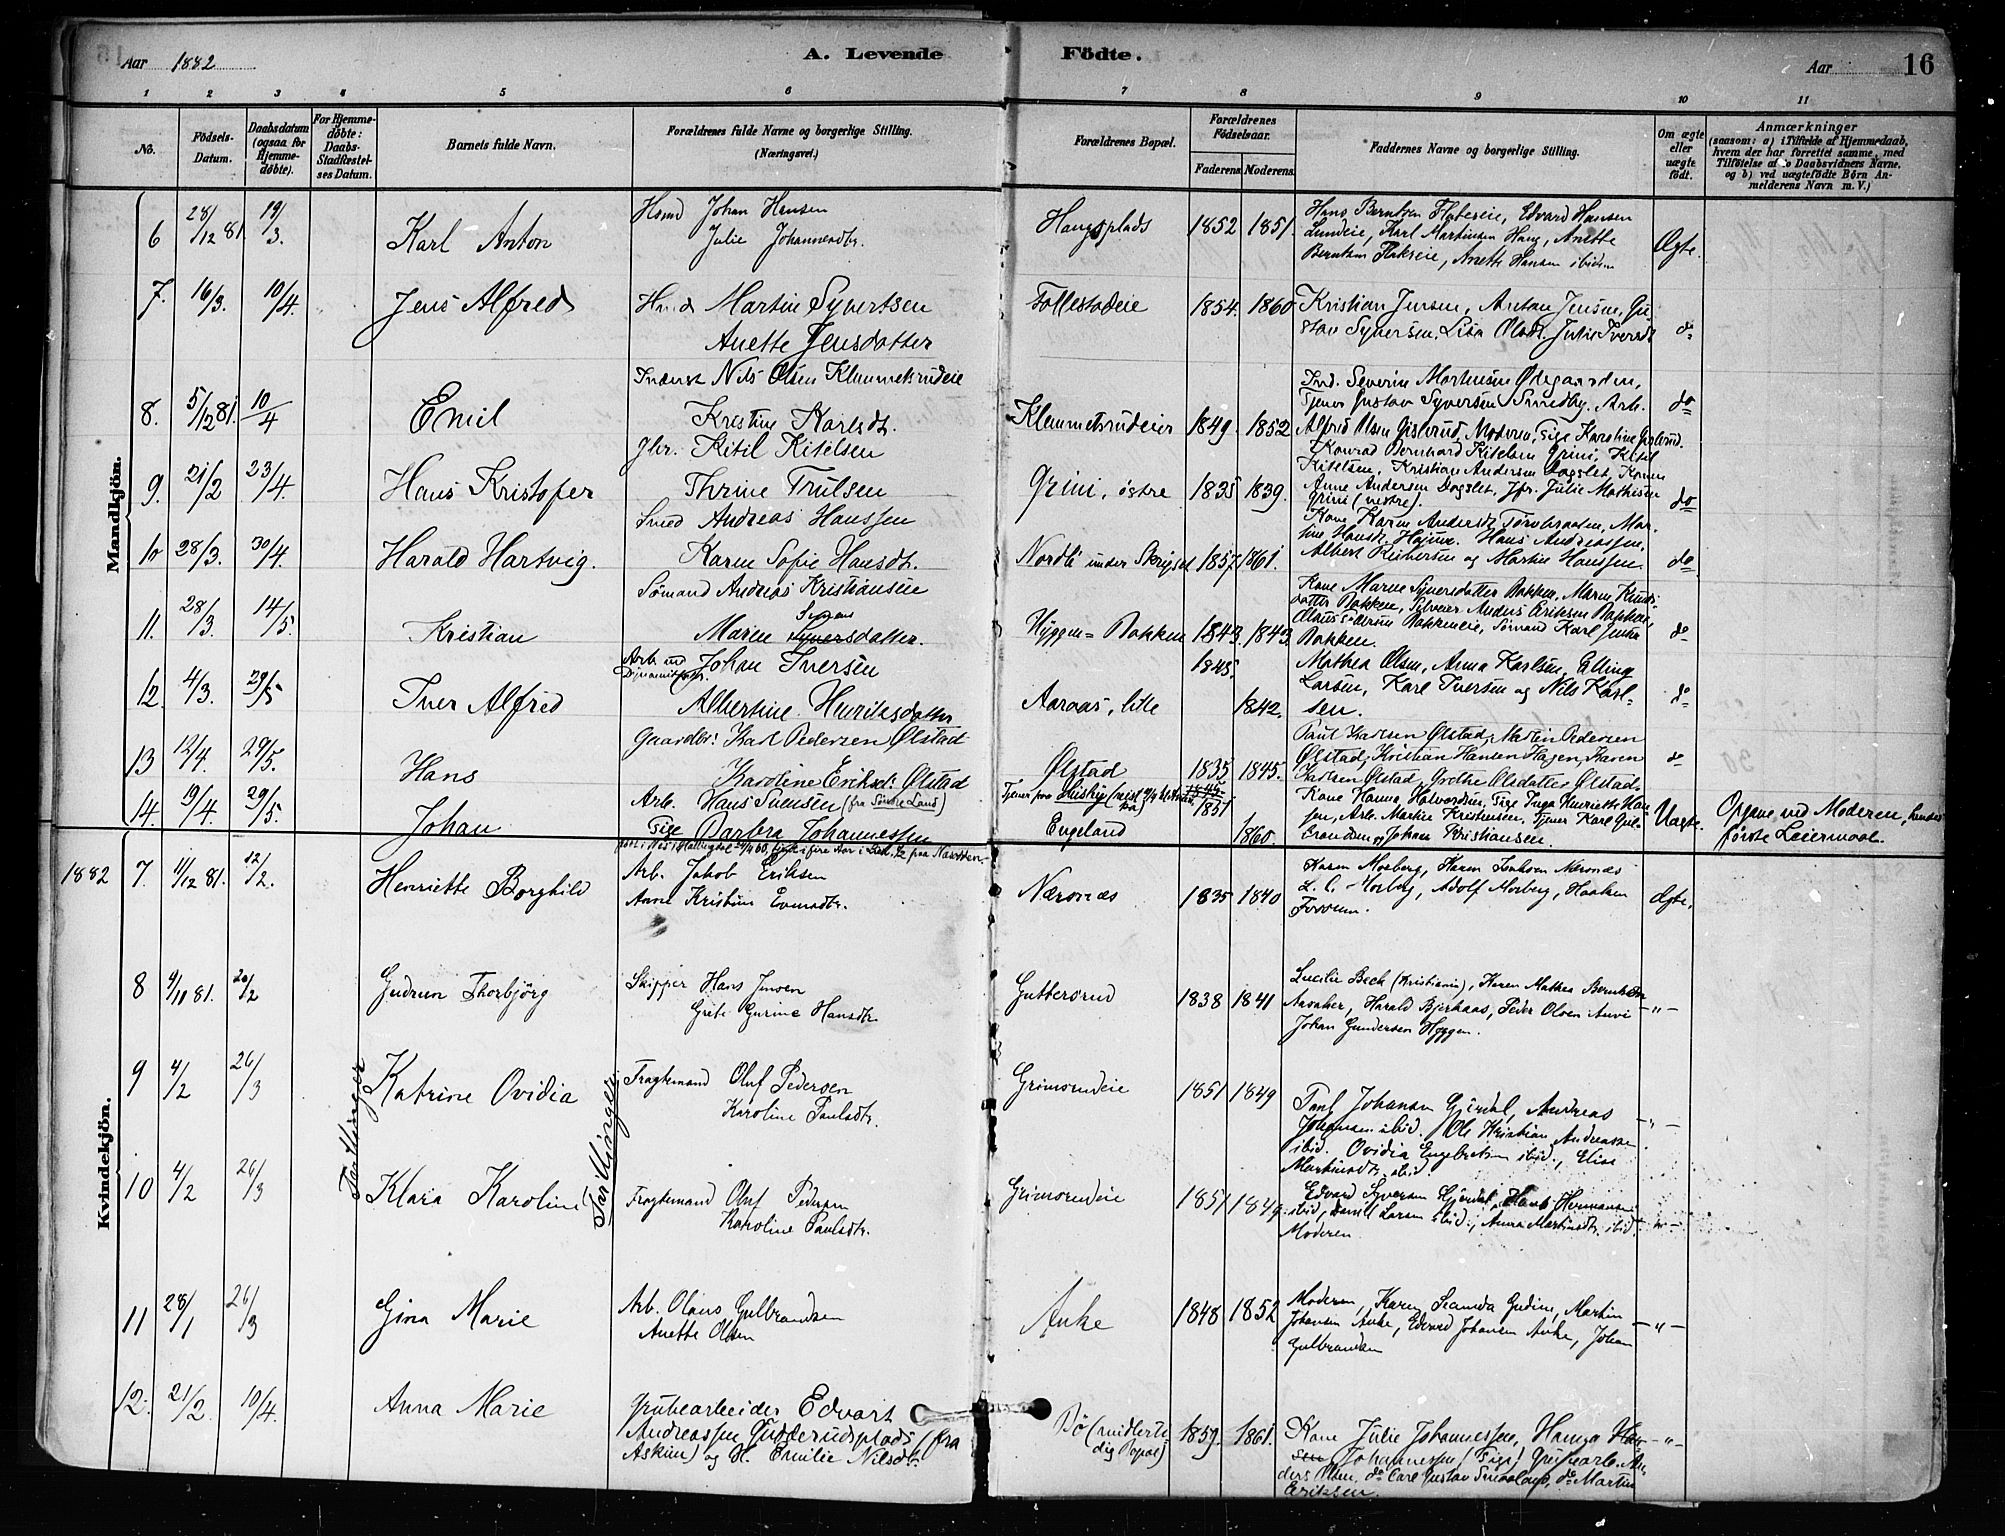 Aar 1882
A. Levende Födte.
Aar 16
1 2 3 4 5 6 7 8 9 10 11
No.
Födsels-Datum.
Daabsdatum (ogsaa for Hjemmedöbte).
For Hjemmedöbte: Daabs-Stadfæstelses Datum.
Barnets fulde Navn.
Forældrenes fulde Navne og borgerlige Stilling. (Næringsvei.)
Forældrenes Bopæl.
Forældrenes Födselsaar.
Faderens Moderens
Faddernes Navne og borgerlige Stilling.
Om ægte eller uægte födt.
Anmærkninger
(saasom: a) i Tilfælde af Hjemmedaab, hvem der har forrettet samme, med Tilföielse af to Daabsvidners Navne, og b) ved uægtefödte Börn Anmelderens Navn m. V.)
Mandkjön.
6 28/12 81. 19/3. Karl Anton
Johan Hansen
Julie Johannesdtr.
Haugsplads 1852 1851.
Hans Berntsen Flakseie, Edvard Hansen
Lundeie, Karl Martinsen Haug, Anette
Berntsen Flakseie, Anette Hansen ibidem
Ægte.
7. 16/3. 10/4. Jens Alfred
Martin Syvertsen
Anette Jensdatter
Follestadeie 1854. 1860
Kristian Jensen, Anton Jensen, Gu-
stav Syversen, Lisa Olsdt. Julie Iversdt
do
8. 5/12 81. 10/4 Emil
Inderst Nils Olsen Klemmetsrudeie
Kristine Karlsdt.
Klemmetsrudeier 1849. 1852
Ind. Severin Martinsen Ødegaarden,
Tjener Gustav Syversen Smedby, Arb.
Alfred Olsen Gislerud, Moderen, Pige Karoline Gislerud.
do
9. 21/2 23/4. Hans Kristofer
Gbr. Kitil Kitelsen
Thrine Trulsen
Grini, østre 1835 1839.
Konrad Bernhard Kitelsen Grini, Kitil
Kitelsen, Kristian Andersen Dagslet, Konen
Anne Andersen Dagslet, Jfr. Julie Mathisen
Grini (vestre).
do
10 28/3. 30/4. Harald Hartvig.
Smed Andreas Hanssen
Karen Sofie Hansdt.
Nordli under Skrysset 1857. 1861.
Kone Karen Andersdt.
Hans Andreassen,
og Martin Hanssen.
do
11. 28/3. 14/5. Kristian
Sømand Andreas Kristiansen
Maren Syversdatter.
Hyggen=Bakken 1843. 1843.
Kone Maren Syversdatter Bakken, Maren Knuds-
datter Bakken, Anders Eriksen Bakken,
Bakkeneie, Sømand Karl
Bakken.
do
12. 4/3. 29/5 Iver Alfred
Arb. ved Dynamitfabr. Johan Iversen
Albertine Henriksdatter
Aaraas, lille 1845. 1842.
Mathea Olsen, Anna Karlsen, Elling
Larsen, Karl Iversen og Nils Karl-
sen.
do
13 12/4. 29/5. Hans
Gaardbr: Karl Pedersen Ølstad
Karoline Eriksd: Ølstad
Ølstad 1835 1845.
Paul Karlsen Ølstad, Martin Pedersen
Ølstad, Kristian Hansen Hagen, Karen
Karlsen Ølstad, Grethe Olsdatter Ølstad
do
14. 19/4. 29/5. Johan
Arb. Hans Svensen (fra Søndre Land)
Pige Barbra Johannessen
Engeland 1851 1860.
Kone Hanna Halvordsen, Pige Inga Henriette Han-
sen, Arb. Martin Kristensen, Tjener Karl Gul-
brandsen, Johan Kristiansen.
Uægte.
Opgave ved Moderen, hendes
første Leiermaal.
Kvindekjön.
1882 7. 11/12 81. 12/2. Henriette Borghild
Arb. Jakob Eriksen
Anne Kristine Evensdtr.
Nærsnæs 1835 1840
Karen Morberg, Nærsnæs
L. C. Morberg, Adolf Morberg, Haaken
Fossum.
Ægte.
8 9/11 81. 20/2 Gudrun Thorbjørg
Skipper Hans Jensen
Grete Gurine Hansdtr.
Guttersrud 1838 1841
Lucilie Bech (Kristiania), Karen Mathea Berntsen
Aasaker, Harald Bjerkaas, Peder Olsen Auvi
Johan Gundersen Hyggen.
-"-
9 4/2 26/3 Katrine Ovidia
Fragtemand Oluf Pedersen
Karoline Paulsdtr.
Grimsrudeie 1851 1849
Paul Johansen Gjerdal, Andreas
Johansen ibid. Ole Kristian Andreasse
ibid. Ovidia Engebretsen ibid., Elise
Martinsdtr. ibid.
-"-
Tvillinger
10 4/2 26/3 Klara Karoline
Tvillinger
Fragtemand Oluf Pedersen
Karoline Paulsdtr.
Grimsrudeie 1851 1849.
Edvard Syversen Gjerdal, Hermansen
ibid, Larsen ibid., Anna Martinsdtr. ibid.
Moderen.
-"-
11 28/1 26/3 Gina Marie
Arb. Olaus Gulbrandsen
Anette Olsen
Auke 1848 1852
Moderen, Karen Gudine, Martin
Johansen Auke, Edvard Johansen Auke, Johan
Gulbrandsen
-"-
12. 21/2. 10/4. Anna Marie
Grubearbeider Edvart
Andreassen Gudderudsplads (fra
Askim) og H. Emilie Nilsdt.
Bø (midlerti-
dig Bopæl) 1859. 1861.
Kone Julie Johannessen, Hanna Han-
sen Johannessen (Pige) Grubearb. An-
ders Olsen, do Carl Gustav do Martin
Eriksen.
-"-